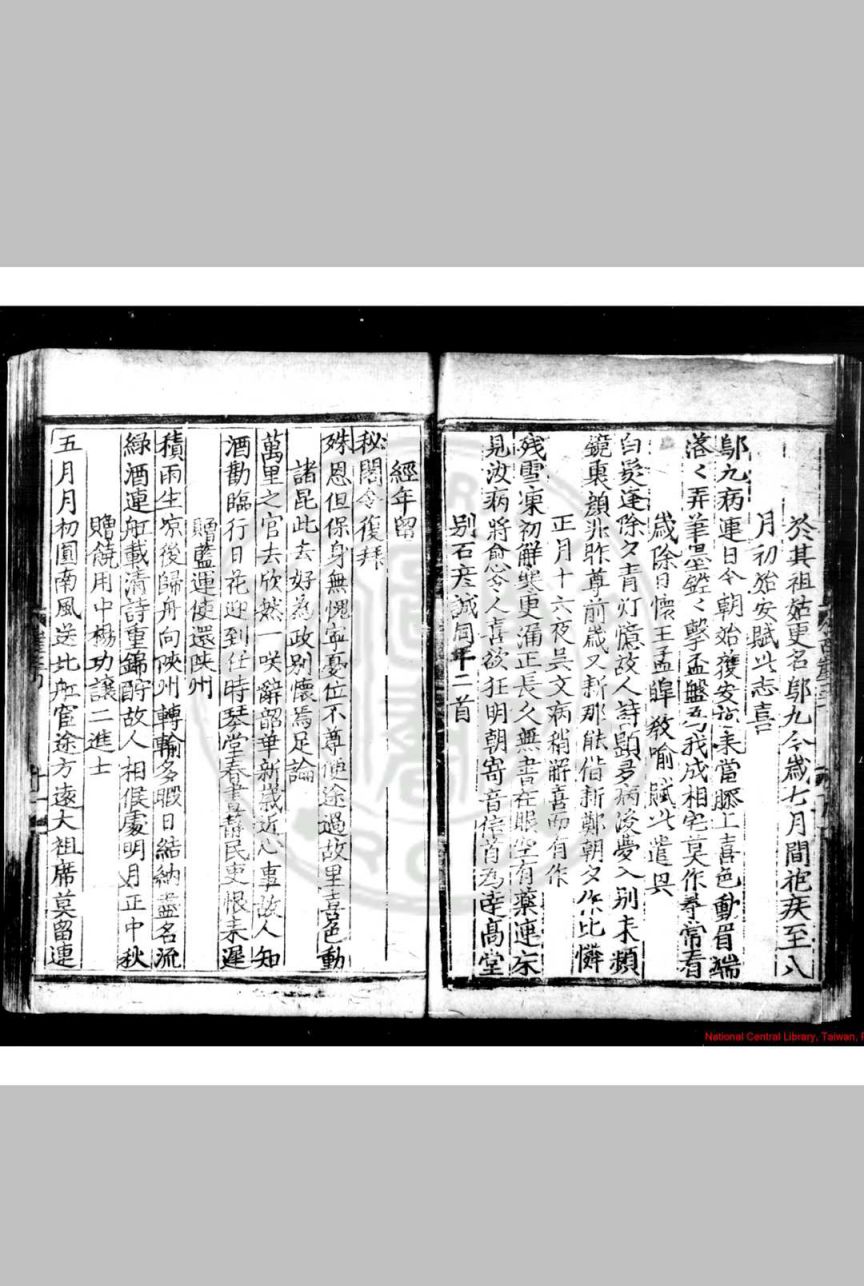 於其祖姑更名鄔九今歲七月間抱疾至八
月初始安賦此志喜
鄔九病連日今朝始獲安 来當膝上喜色動眉端
落く弄筆墨 く擊盃盤 我成相宅莫作尋常看
歲除日懷王孟暐教喻賦此遣 
白髮逢除夕青灯憶故人詩 多病後夢入別来頻
鏡裏顔非昨尊前歲又新那能偕新鄭朝夕作比憐
正月十六夜吳文病稍痊喜而有作
残雪凍初解寒更漏正長久無書在眼空有藥連床
見汝病將愈令人喜欲狂明朝寄音信首為達髙堂
別石彦誠同年二首
經年留
秘閣今復拜
殊恩但保身無愧寧憂位不尊便途過故里喜色動
諸昆此去好為政別懷焉足論
萬里之官去欣然一咲辭韶華新歲近心事故人知
酒勸臨行日花迎到任時琴堂春晝静民吏恨来遲
贈藍運使還陕州
積雨生凉後歸舟向陕州轉輸多暇日結納盡名流
緑酒連舡載清詩重錦酧故人相俟處明月正中秋
贈饒用中楊功讓二進士
五月月初圓南風送北舡宦途方遠大祖席莫留連
National Central Library, Taiwan,